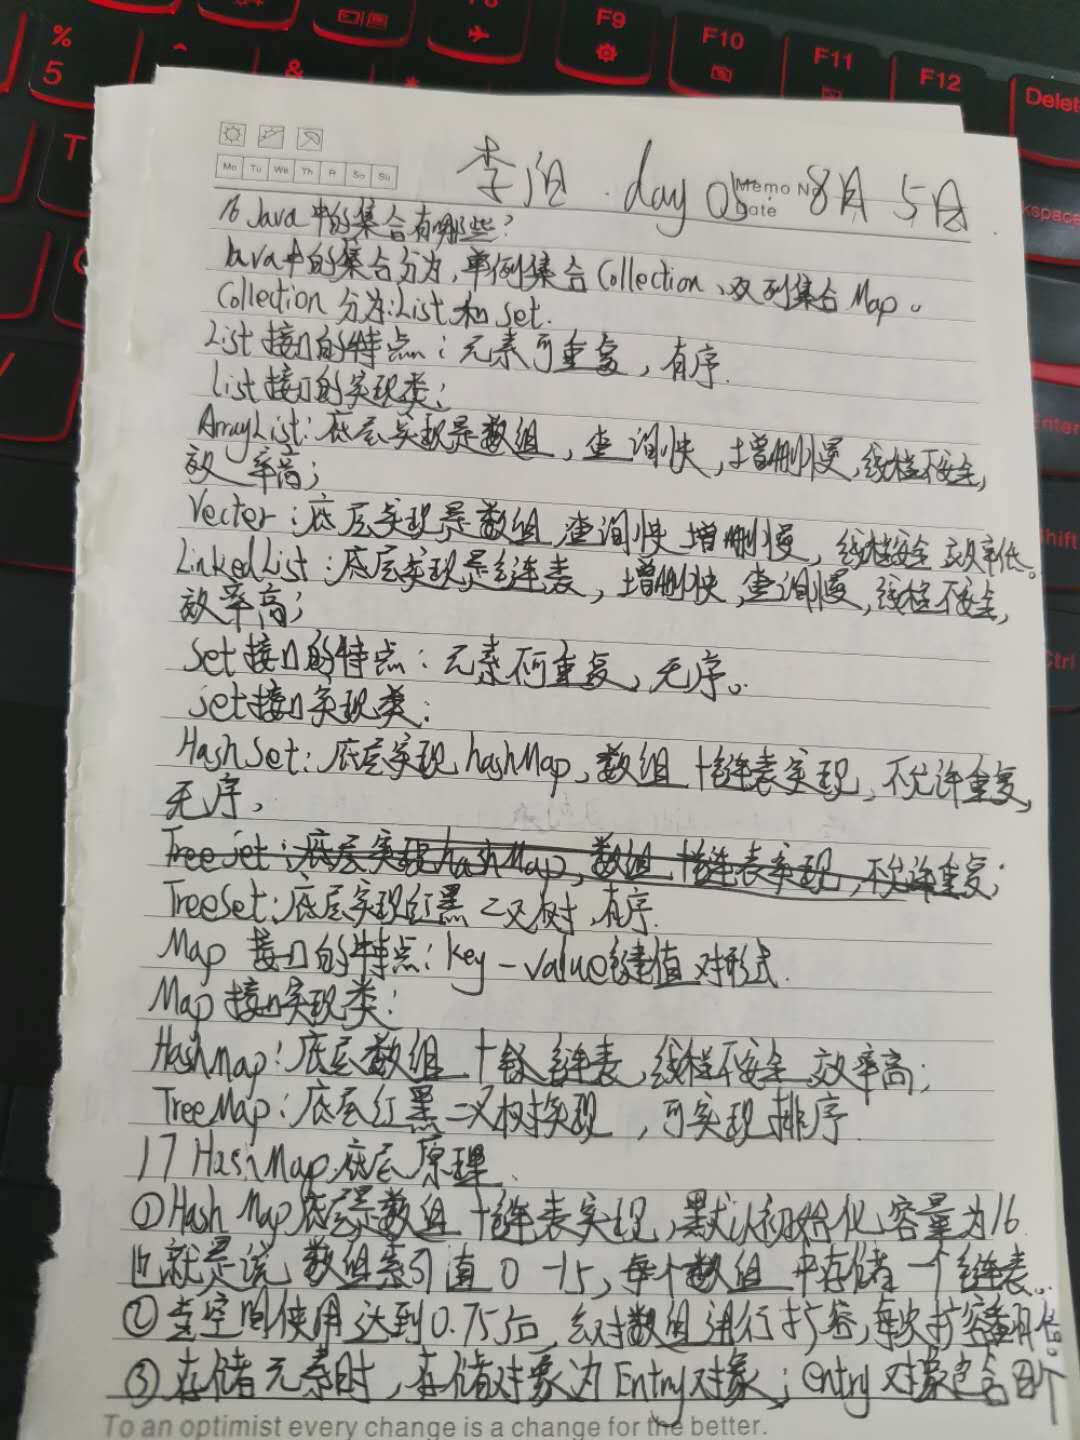 % 5
F9
F10
F11
F12
Delet
&
T
kspace
Enter
Shift
Ctrl
Mo Tu We Th Fr Sa Su
李 day 05 Memo No 8月5日
Date
16 Java中的集合有哪些?
Java中的集合分为,单例集合Collection、双列集合Map。
Collection 分为:List 和 Set.
List 接口的特点:元素可重复,有序.
List接口的实现类:
ArrayList:底层实现是数组,查询快,增删慢,线程不安全,
效率高;
Vecter:底层实现是数组 查询快 增删慢,线程安全 效率低。
LinkedList:底层实现是链表,增删快,查询慢,线程不安全,
效率高;
Set接口的特点:元素不可重复,无序。
Set接口实现类:
HashSet:底层实现hashMap,数组+链表实现,不允许重复,
无序,
TreeSet:底层实现hashMap,数组+链表实现,不允许重复;
TreeSet:底层实现红黑二叉树,有序.
Map 接口的特点:key-value键值对形式.
Map 接口实现类:
Hashmap:底层数组+链表,线程不安全 效率高;
TreeMap:底层红黑二叉树实现,可实现排序.
17 HashMap底层原理.
①Hash Map底层是数组+链表实现,默认初始化容量为16.
也就是说 数组索引值0-15,每个数组中存储一个链表.
②当空间使用达到0.75后,会对数组进行扩容,每次扩容翻倍。
③存储元素时,存储对象为Entry对象;entry对象包含四个
To an optimist every change is a change for the better.